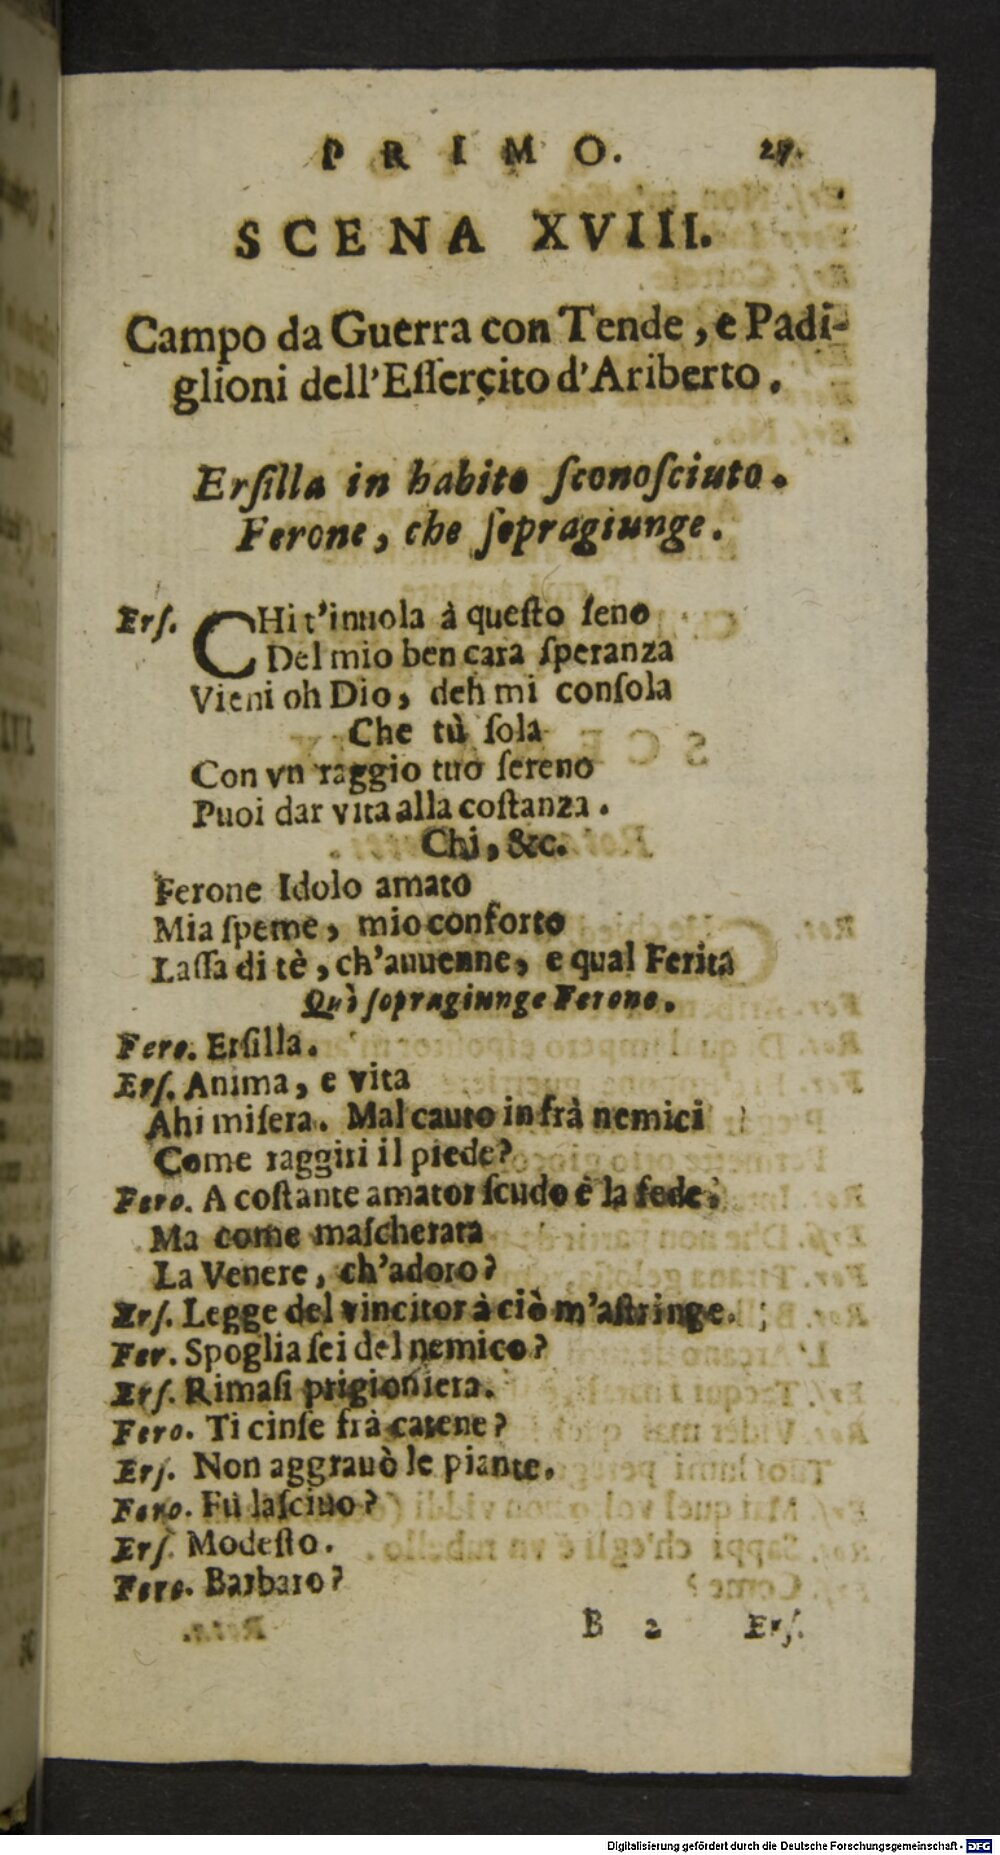 PRIMO. 27.
SCENA XVIII.
Campo da Guerra con Tende, e Padi-
glioni dell'Eſſercito d'Ariberto.
Erſilla in habito ſconoſciuto.
Ferone, che ſopragiunge.
Erſ. CHi t'inuola à queſto ſeno
Del mio ben cara ſperanza
Vieni oh Dio, deh mi conſola
Che tù ſola
Con vn raggio tuo ſereno
Puoi dar vita alla coſtanza.
Chi, &c.
Ferone Idolo amato
Mia ſpeme, mio conforto
Laſſa di tè, ch'auuenne, e qual Ferita
Quì ſopragiunge Ferone.
Fero. Erſilla.
Erſ. Anima, e vita
Ahi miſera. Mal cauto in frà nemici
Come raggiri il piede?
Fero. A coſtante amator ſcudo è la fede.
Ma come maſcherata
La Venere, ch'adoro?
Erſ. Legge del vincitor à ciò m'aſtringe.
Fer. Spoglia ſei del nemico?
Erſ. Rimaſi prigioniera.
Fero. Ti cinſe frà catene?
Erſ. Non aggrauò le piante.
Fero. Fù laſciuo?
Erſ. Modeſto.
Fero. Barbaro?
B 2 Erſ.
Digitalisierung gefördert durch die Deutsche Forschungsgemeinschaft - DFG